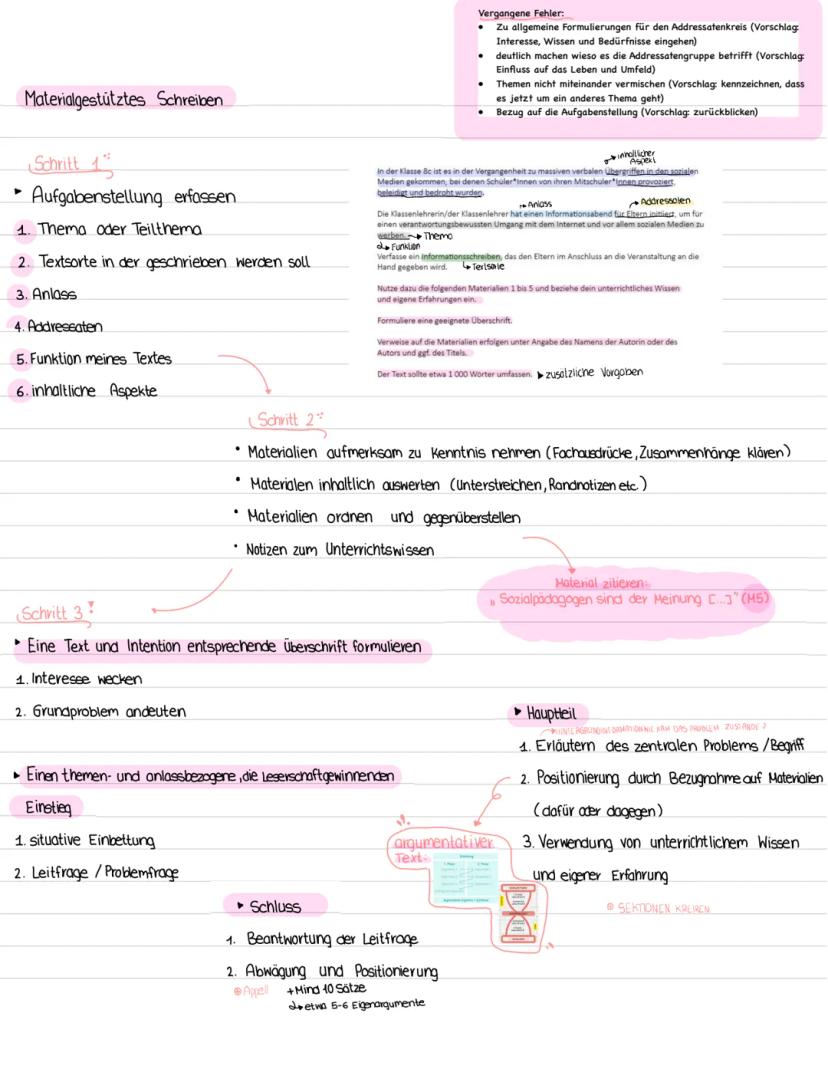 Vergangene Fehler:
• Zu allgemeine Formulierungen für den Addressatenkreis (Vorschlag:
Interesse, Wissen und Bedürfnisse eingehen)
• deutlich machen wieso es die Addressatengruppe betrifft (Vorschlag:
Einfluss auf das Leben und Umfeld)
• Themen nicht miteinander vermischen (Vorschlag: kennzeichnen, dass
es jetzt um ein anderes Thema geht)
• Bezug auf die Aufgabenstellung (Vorschlag: zurückblicken)
Materialgestütztes Schreiben
Schritt 1
▸ Aufgabenstellung erfassen
1. Thema oder Teilthema
2. Textsorte in der geschrieben werden soll
3. Anlass
4. Addressaten
5. Funktion meines Textes
6. inhaltliche Aspekte
inhaltlicher
Aspekt
In der Klasse 8c ist es in der Vergangenheit zu massiven verbalen Übergriffen in den sozialen
Medien gekommen, bei denen Schüler*Innen von ihren Mitschüler*Innen provoziert,
beleidigt und bedroht wurden.
Anlass
Addressaten
Die Klassenlehrerin/der Klassenlehrer hat einen Informationsabend für Eltern initiiert, um für
einen verantwortungsbewussten Umgang mit dem Internet und vor allem sozialen Medien zu
werben. → Thema
↳ Funktion
Verfasse ein Informationsschreiben, das den Eltern im Anschluss an die Veranstaltung an die
Hand gegeben wird.
Nutze dazu die folgenden Materialien 1 bis 5 und beziehe dein unterrichtliches Wissen
und eigene Erfahrungen ein.
Formuliere eine geeignete Überschrift.
Verweise auf die Materialien erfolgen unter Angabe des Namens der Autorin oder des
Autors und ggf. des Titels.
Der Text sollte etwa 1 000 Wörter umfassen. ▸ zusätzliche Vorgaben
Schritt 2
• Materialien aufmerksam zu Kenntnis nehmen (Fachausdrücke, Zusammenhänge klären)
• Materialen inhaltlich auswerten (Unterstreichen, Randnotizen etc.)
• Materialien ordnen und gegenüberstellen
• Notizen zum Unterrichtswissen
Material zitieren:
„ Sozialpädagogen sind der Meinung [...]" (M5)
Schritt 3!
▸ Eine Text und Intention entsprechende Überschrift formulieren
1. Interesse wecken
2. Grundproblem andeuten
▸ Einen themen- und anlassbezogene, die Leserschaftgewinnenden
Einstieg
1. situative Einbettung
2. Leitfrage / Problemfrage
▸ Hauptteil
1. Erläutern des zentralen Problems / Begriff
2. Positionierung durch Bezugnahme auf Materialien
(dafür oder dagegen)
3. Verwendung von unterrichtlichem Wissen
und eigener Erfahrung
⊕ SEKTIONEN KREIREN
argumentativer
Text:
▸ Schluss
1. Beantwortung der Leitfrage
2. Abwägung und Positionierung
⊕ Appell + Mind 10 Sätze
↳ etwa 5-6 Eigenargumente